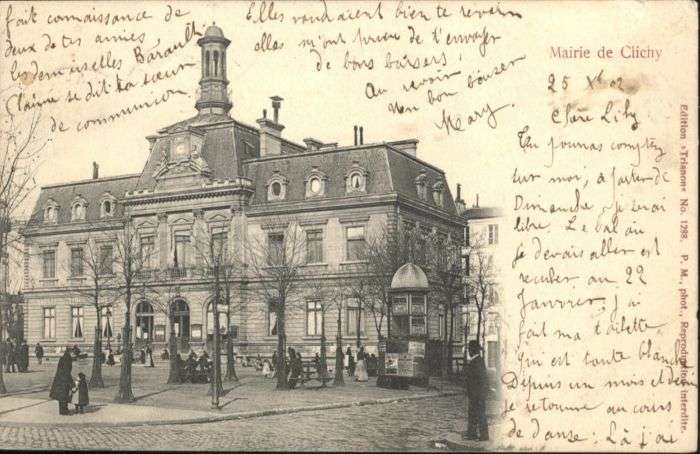 Mairie de Clichy
25 Xbre 02
Chère Lily
Tu pourras compter
sur moi, à partir de
Dimanche je serai
libre. Le bal où
je devais aller est
reculer au 22
Janvrier; j'ai
fait ma toilette
qui est toute blanche
Depuis un mois et demi
je retourne au cours
de danse. Là j'ai
fait connaissance de
deux de tes amies,
les demoiselles Barault
Claire se dit ta sœur
de communion
Elles voudraient bien te revoir
elles m'ont priée de t'envoyer
de bons baisers,
Au revoir
Un bon baiser
Mary.
Edition »Trianon« No. 1288. P. M., phot., Reproduction interdite.